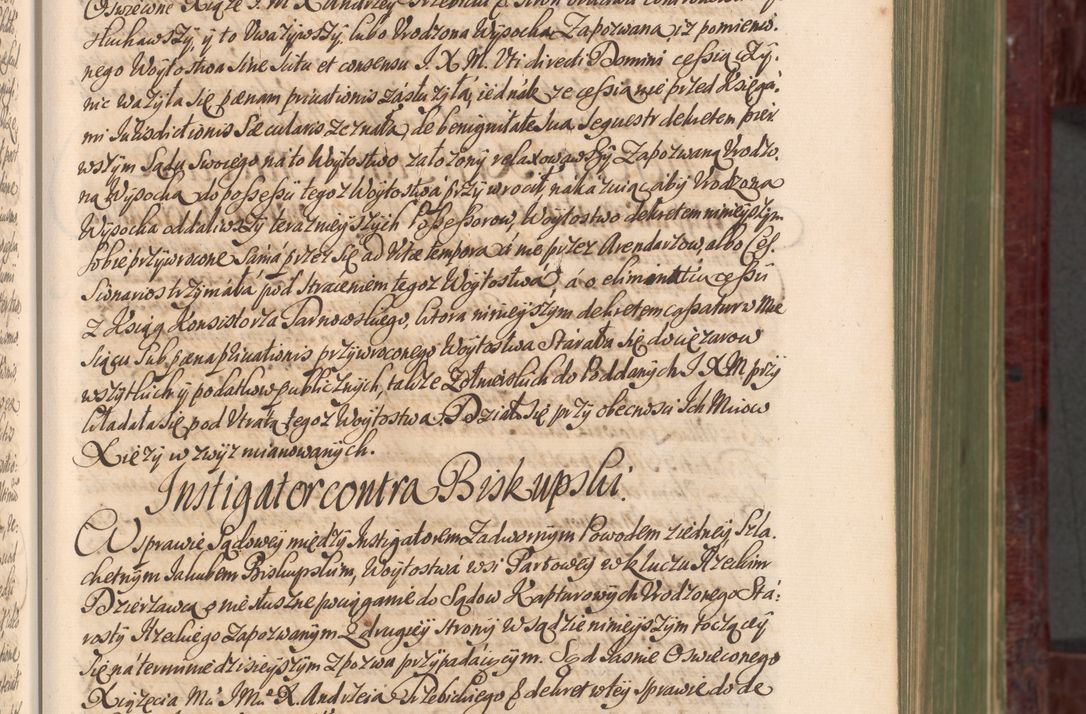 Oswięcone Xiąze J. M. X. Andrzey Trzebicki & stron
słuchawszy, y to Uwazywszy lubo Urodzona Wysocka Zapozwana iz pomienio:
nego Woytostwa sine scitu et consensu J. X. M. Uti directi Domini cessią czy:
nic wazyła się pænam privationis zasłuzyła, iednak ze cessia nie przed Xięga:
mi Jurisdictionis Sæcularis zeznała, de benignitate sua sequestr dekretem pier
wszym Sądu Swoiego na to Woytostwo załozony relaxowawszy Zapozwaną Urodzo.
ną Wysocką do possessii tegoz Woytostwa przywrocił nakazuiąc aby Urodzona
Wysocka oddaliwszy teraznieyszych Possessorow, Woytostwo dekretem ninieyszym
sobie przywrocone Sama przez się ad Vitæ tempora á nie przez Arendarzow, albo Ces.
sionarios trzymała pod straceniem tegoz Woytostwa, á o eliminatią cessii
z Xiąg Konsistorza Tarnowskiego, ktora ninieyszym dekretem cassatur w Mie
siącu sub pæna privationis przywroconego Woytostwa starała się do cięzarow
wszytkich y podatkow publicznych, takze Zołnierskich do Poddanych J. X. M. przy
kładała się pod Utratą tegoz Woytostwa. Działo się przy obecnosci Ich Mciow
Xięzy w zwyz mianowanych.
Instigator contra Biskupski.
W sprawie Sądowey między Instigatorem Zadwornym Powodem z iedney Szla.
chetnym Jakubem Biskupskim, Woytostwa wsi Tarkowey w kluczu Iłzeckim
Dzierzawcą o niesłuszne pociąganie do Sądow Kapturowych Urodzonego Stá:
rosty Iłzeckiego Zapozwanym z drugiey strony w Sądzie ninieyszym toczącey
się na terminie dzisieyszym z pozwu przypadaiącym. Sąd Jasnie Oswieconego
Xiązęcia Mci Jmci X. Andrzeia Trzebickiego & dekret w tey sprawie do de